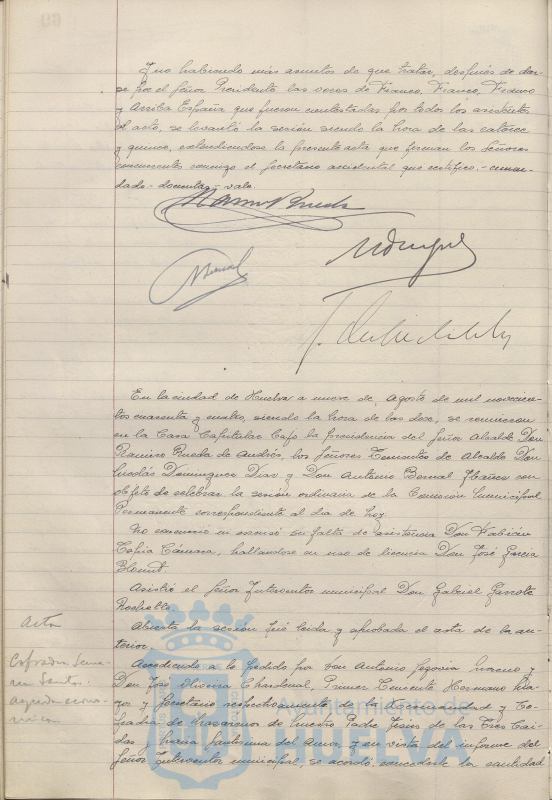 Y no habiendo más asuntos de que tratar, después de dar-
se por el Señor Presidente las voces de Franco, Franco, Franco
y Arriba España que fueron contestadas por todos los asistentes
al acto, se levantó la sesión siendo la hora de las catorce
y quince, extendiéndose la presente acta que firman los Señores
concurrentes conmigo el Secretario accidental que certifico.- enmen-
dado- vale.
En la ciudad de Huelva a nueve de Agosto de mil novecien-
tos cuarenta y cuatro, siendo la hora de las doce, se reunieron
en la Casa Capitular bajo la presidencia del Señor Alcalde Don
Ramiro Rueda de Andrés, los Señores Tenientes de Alcalde Don
Nicolás Dominguez Diaz y Don Antonio Bernal Ibañez con
objeto de celebrar la sesión ordinaria de la Comisión Municipal
Permanente correspondiente al día de hoy.
No concurrió ni excusó su falta de asistencia Don Fabián
Tapia Cámara, hallándose en uso de licencia Don José García
Asistió el Señor Interventor municipal Don Gabriel Garrote
Acta
Abierta la sesión fué leída y aprobada el acta de la an-
terior.
Cofradía Sema-
na Santa.
ayuda econo-
mica.
Accediendo a lo pedido por Don Antonio Segovia Moreno y
Don José Oliveira Chardenal, Primer Teniente Hermano Ma-
yor y Secretario respectivamente de la Hermandad y Co-
fradía de Nazarenos de Nuestro Padre Jesús de las Tres Caí-
das y María Santísima del Amor, y en vista del informe del
Señor Interventor municipal, se acordó concederle la cantidad
Ayuntamiento de
HUELVA